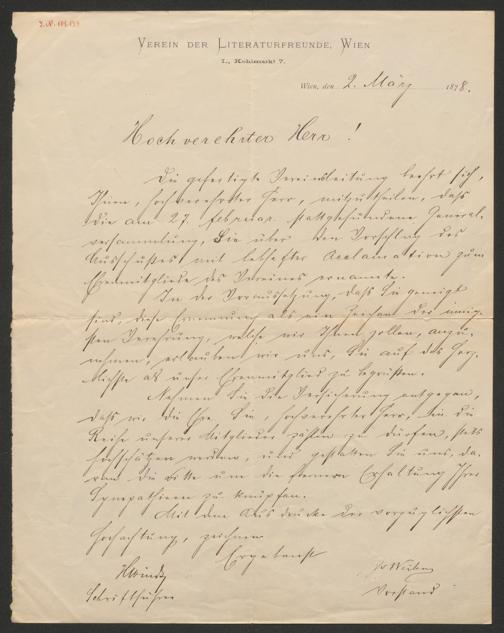 Verein der Literaturfreunde, Wien
I., Kohlmarkt 7.
Wien, den 2. März 1878.
Hochverehrter Herr!
Die gefertigte Vereinsleitung beehrt sich,
Ihnen, hochverehrter Herr, mitzutheilen, dass
die am 27. Februar stattgefundene General-
versammlung, Sie über den Vorschlag des
Ausschußes mit lebhafter Acclamation zum
Ehrenmitgliede des Vereines ernannte.
In der Voraussetzung, dass Sie geneigt
sind, diese Ernennung als ein Zeichen der innig-
sten Verehrung, welche wir Ihnen zollen, anzu-
nehmen, erlauben wir uns, Sie auf das Herz-
lichste als unser Ehrenmitglied zu begrüßen.
Nehmen Sie die Versicherung entgegen,
dass wir die Ehre, Sie, hochverehrter Herr, in die
Reihe unserer Mitglieder zählen zu dürfen, stets
hochschätzen werden, und gestatten Sie uns, da-
ran die Bitte um die fernere Erhaltung Ihrer
Sympathieen zu knüpfen.
Mit dem Ausdrucke der vorzüglichsten
Hochachtung, zeichnen
Ergebenst
Schriftführer
Vorstand